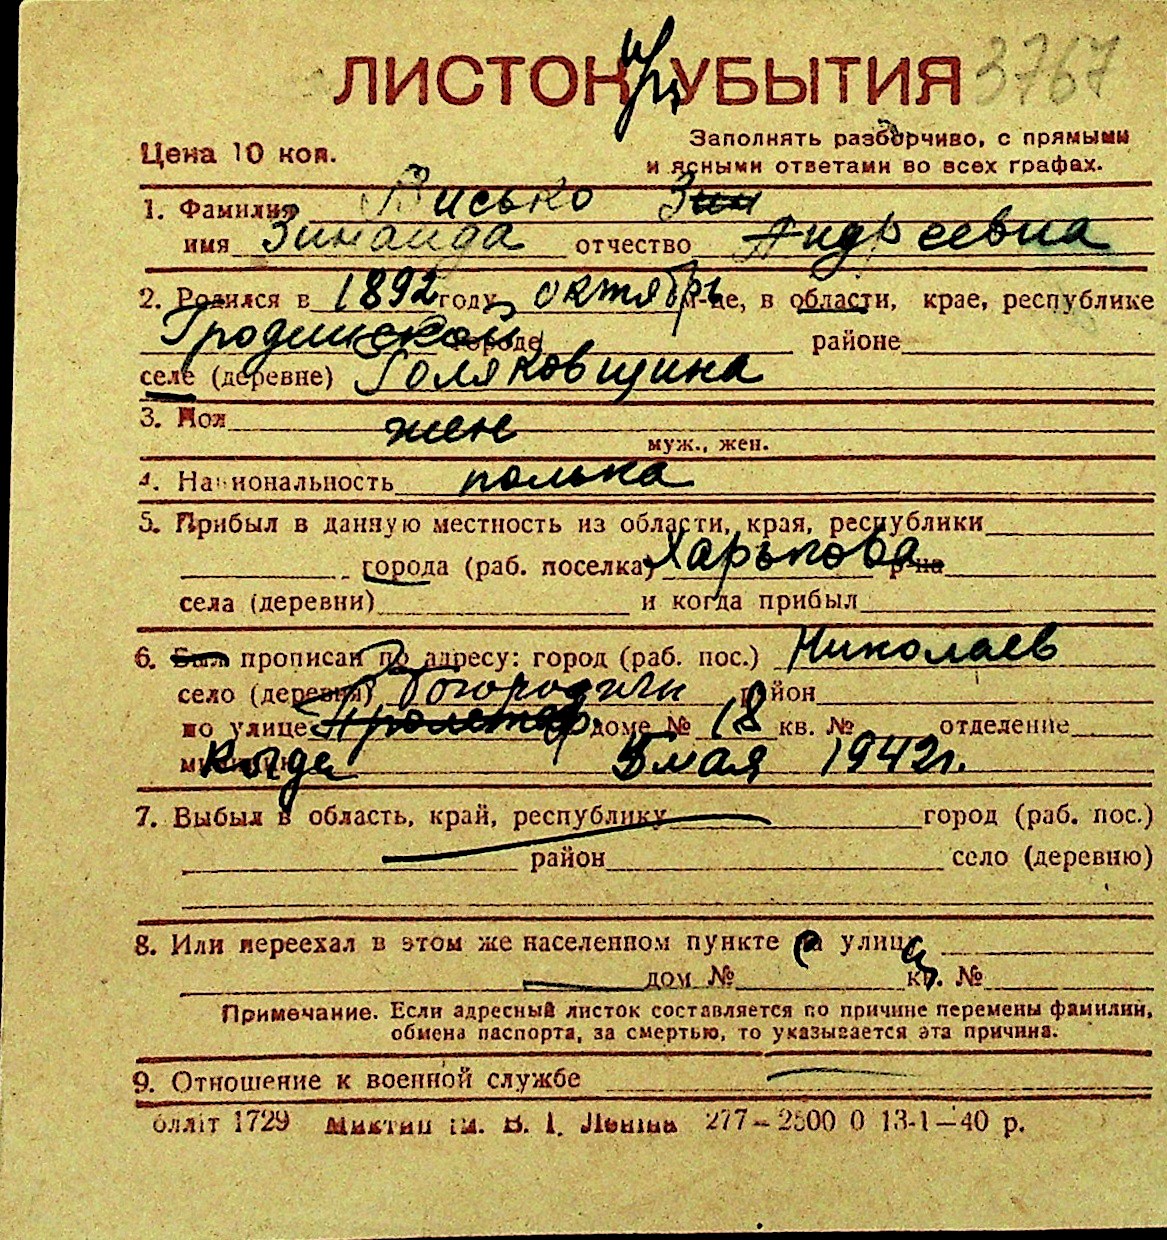 ЛИСТОК УБЫТИЯ 3767
Заполнять разборчиво, с прямыми
Цена 10 коп.
и ясными ответами во всех графах.
1. Фамилия Висько Зин
имя Зинаида отчество Андреевна
2. Родился в 1892 году октябрь м-це, в области, крае, республике
Гродненской городе районе
селе (деревне) Голяковщина
3. Пол жен
муж., жен.
4. Национальность полька
5. Прибыл в данную местность из области, края, республики
города (раб. поселка) Харькова р-на
села (деревни) и когда прибыл
6. Был прописан по адресу: город (раб. пос.) Николаев
село (деревня) район
по улице Пролетар. доме № 18 кв. № отделение
когда 5 мая 1942 г.
7. Выбыл в область, край, республику город (раб. пос.)
район село (деревню)
8. Или переехал в этом же населенном пункте на улицу
дом № кв. №
Примечание. Если адресный листок составляется по причине перемены фамилии,
обмена паспорта, за смертью, то указывается эта причина.
9. Отношение к военной службе
блліт 1729 ім. В. І. Леніна 277—2500 0 13-1—40 р.